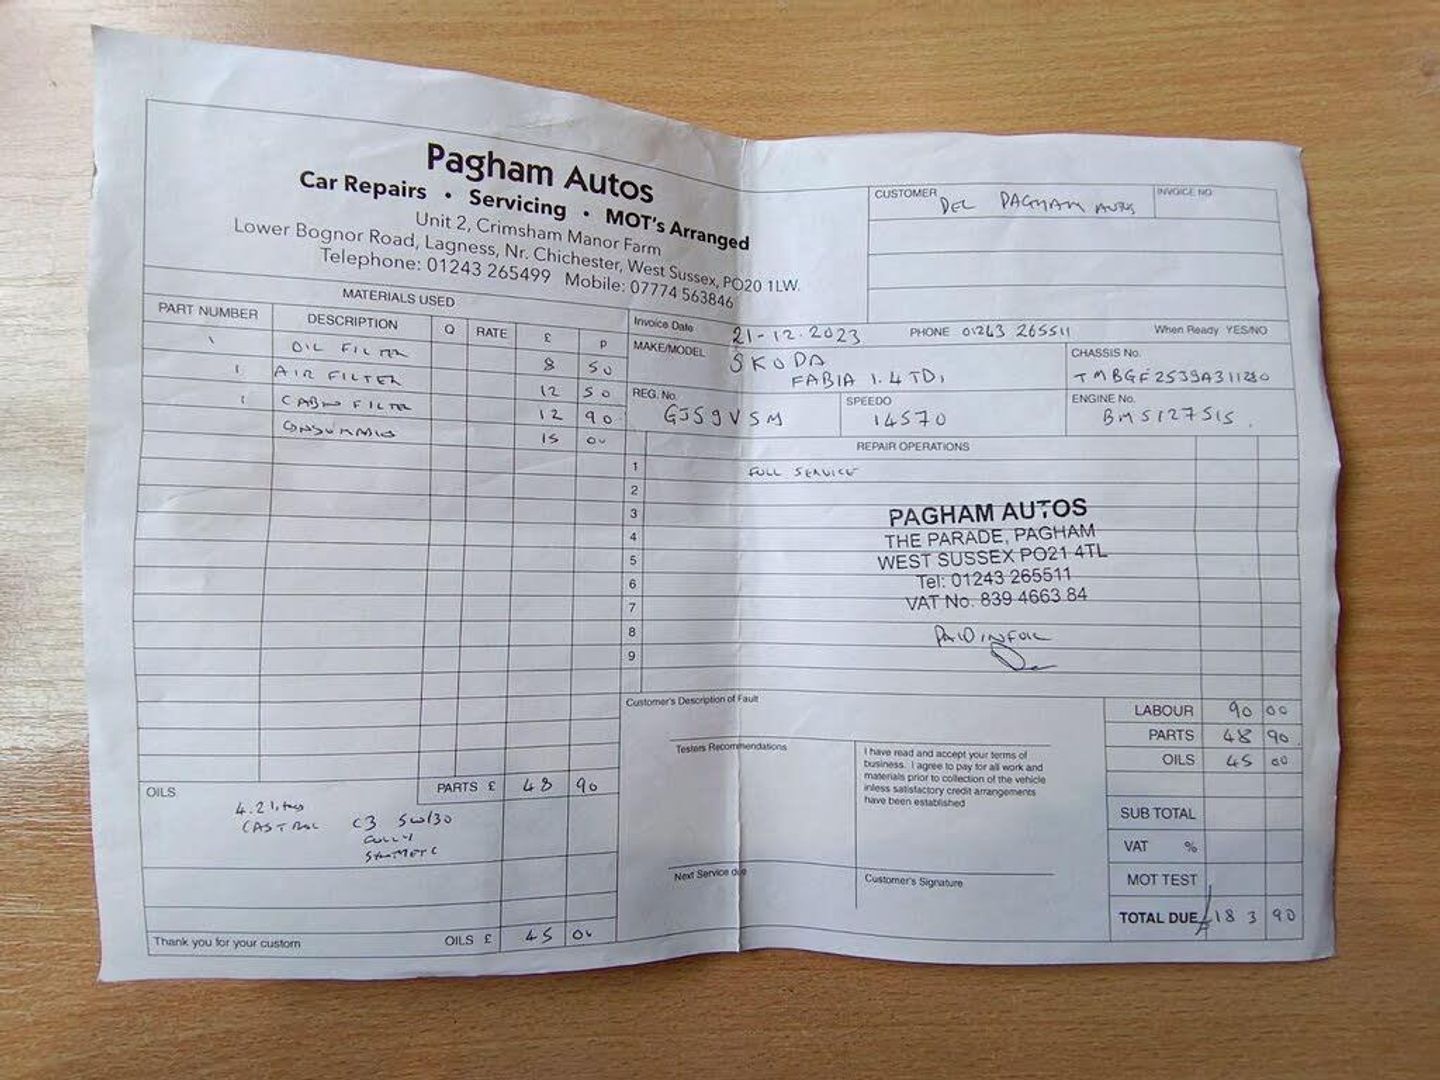 Pagham Autos
Car Repairs • Servicing • MOT's Arranged
Unit 2, Crimsham Manor Farm
Lower Bognor Road, Lagness, Nr. Chichester, West Sussex, PO20 1LW.
Telephone: 01243 265499 Mobile: 07774 563846
CUSTOMER DEL PAGHAM AUTOS
INVOICE NO
MATERIALS USED
PART NUMBER DESCRIPTION Q RATE £ P
1 OIL FILTER 8 50
1 AIR FILTER 12 50
1 CABIN FILTER 12 90
15 00
PARTS £ 48 90
OILS
4.2 litres
CASTROL C3 5W/30
FULLY
OILS £ 45 00
Thank you for your custom
Invoice Date 21-12-2023 PHONE 01243 265511 When Ready YES/NO
MAKE/MODEL SKODA
FABIA 1.4 TDi
CHASSIS No.
REG. No. GJ59VSM
SPEEDO 14570
ENGINE No.
BMS127515
REPAIR OPERATIONS
1 FULL SERVICE
2
3
4
5
6
7
8
9
PAGHAM AUTOS
THE PARADE, PAGHAM
WEST SUSSEX PO21 4TL
Tel: 01243 265511
VAT No. 839 4663 84
PAID IN FULL
Customer's Description of Fault
Testers Recommendations
I have read and accept your terms of
business. I agree to pay for all work and
materials prior to collection of the vehicle
inless satisfactory credit arrangements
have been established
Next Service due
Customer's Signature
LABOUR 90 00
PARTS 48 90
OILS 45 00
SUB TOTAL
VAT %
MOT TEST
TOTAL DUE £183 90